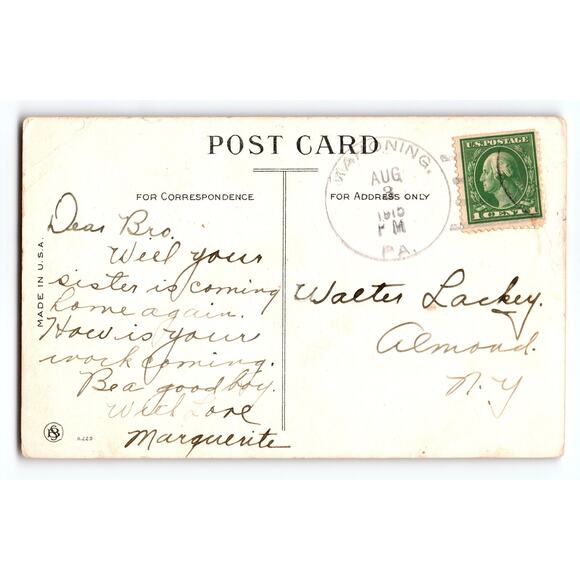 POST CARD
FOR CORRESPONDENCE
FOR ADDRESS ONLY
MAHONING.
AUG
3
PM
PA.
U.S. POSTAGE
1 CENT 1
MADE IN U.S.A.
Dear Bro.
Well your
sister is coming
home again.
How is your
work coming.
Be a good boy.
With Love
Marguerite
Walter Lackey.
Almond.
N.Y